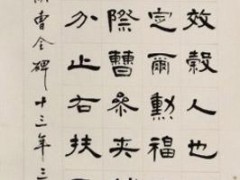 效穀人也
定爾勳福
際曹參夾
分止右扶
曹全碑十三年三